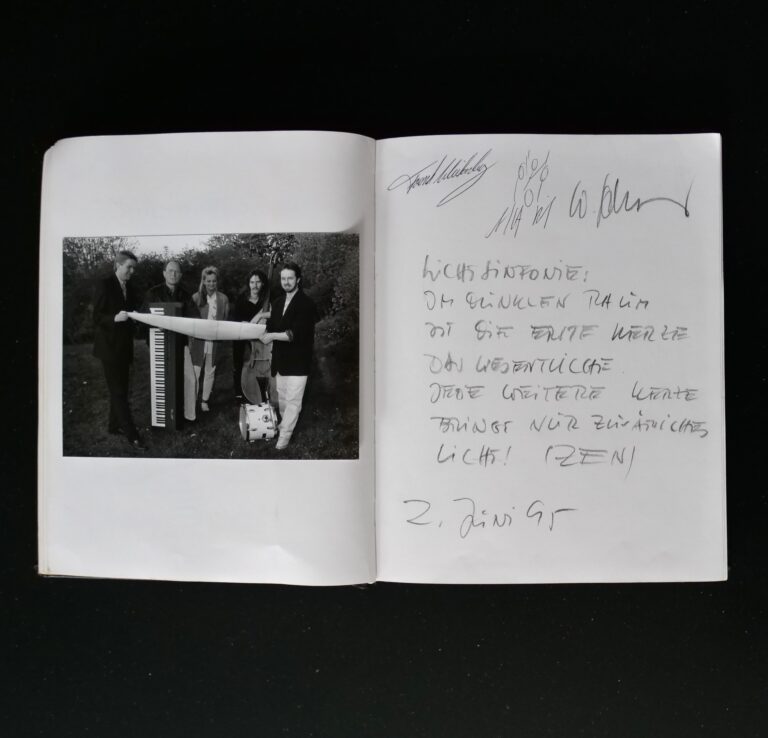 LICHTSINFONIE:
IM DUNKLEN RAUM
IST DIE ERSTE KERZE
DAS WESENTLICHE.
JEDE WEITERE KERZE
BRINGT NUR ZUSÄTZLICHES
LICHT! (ZEN)
2. Juni 95